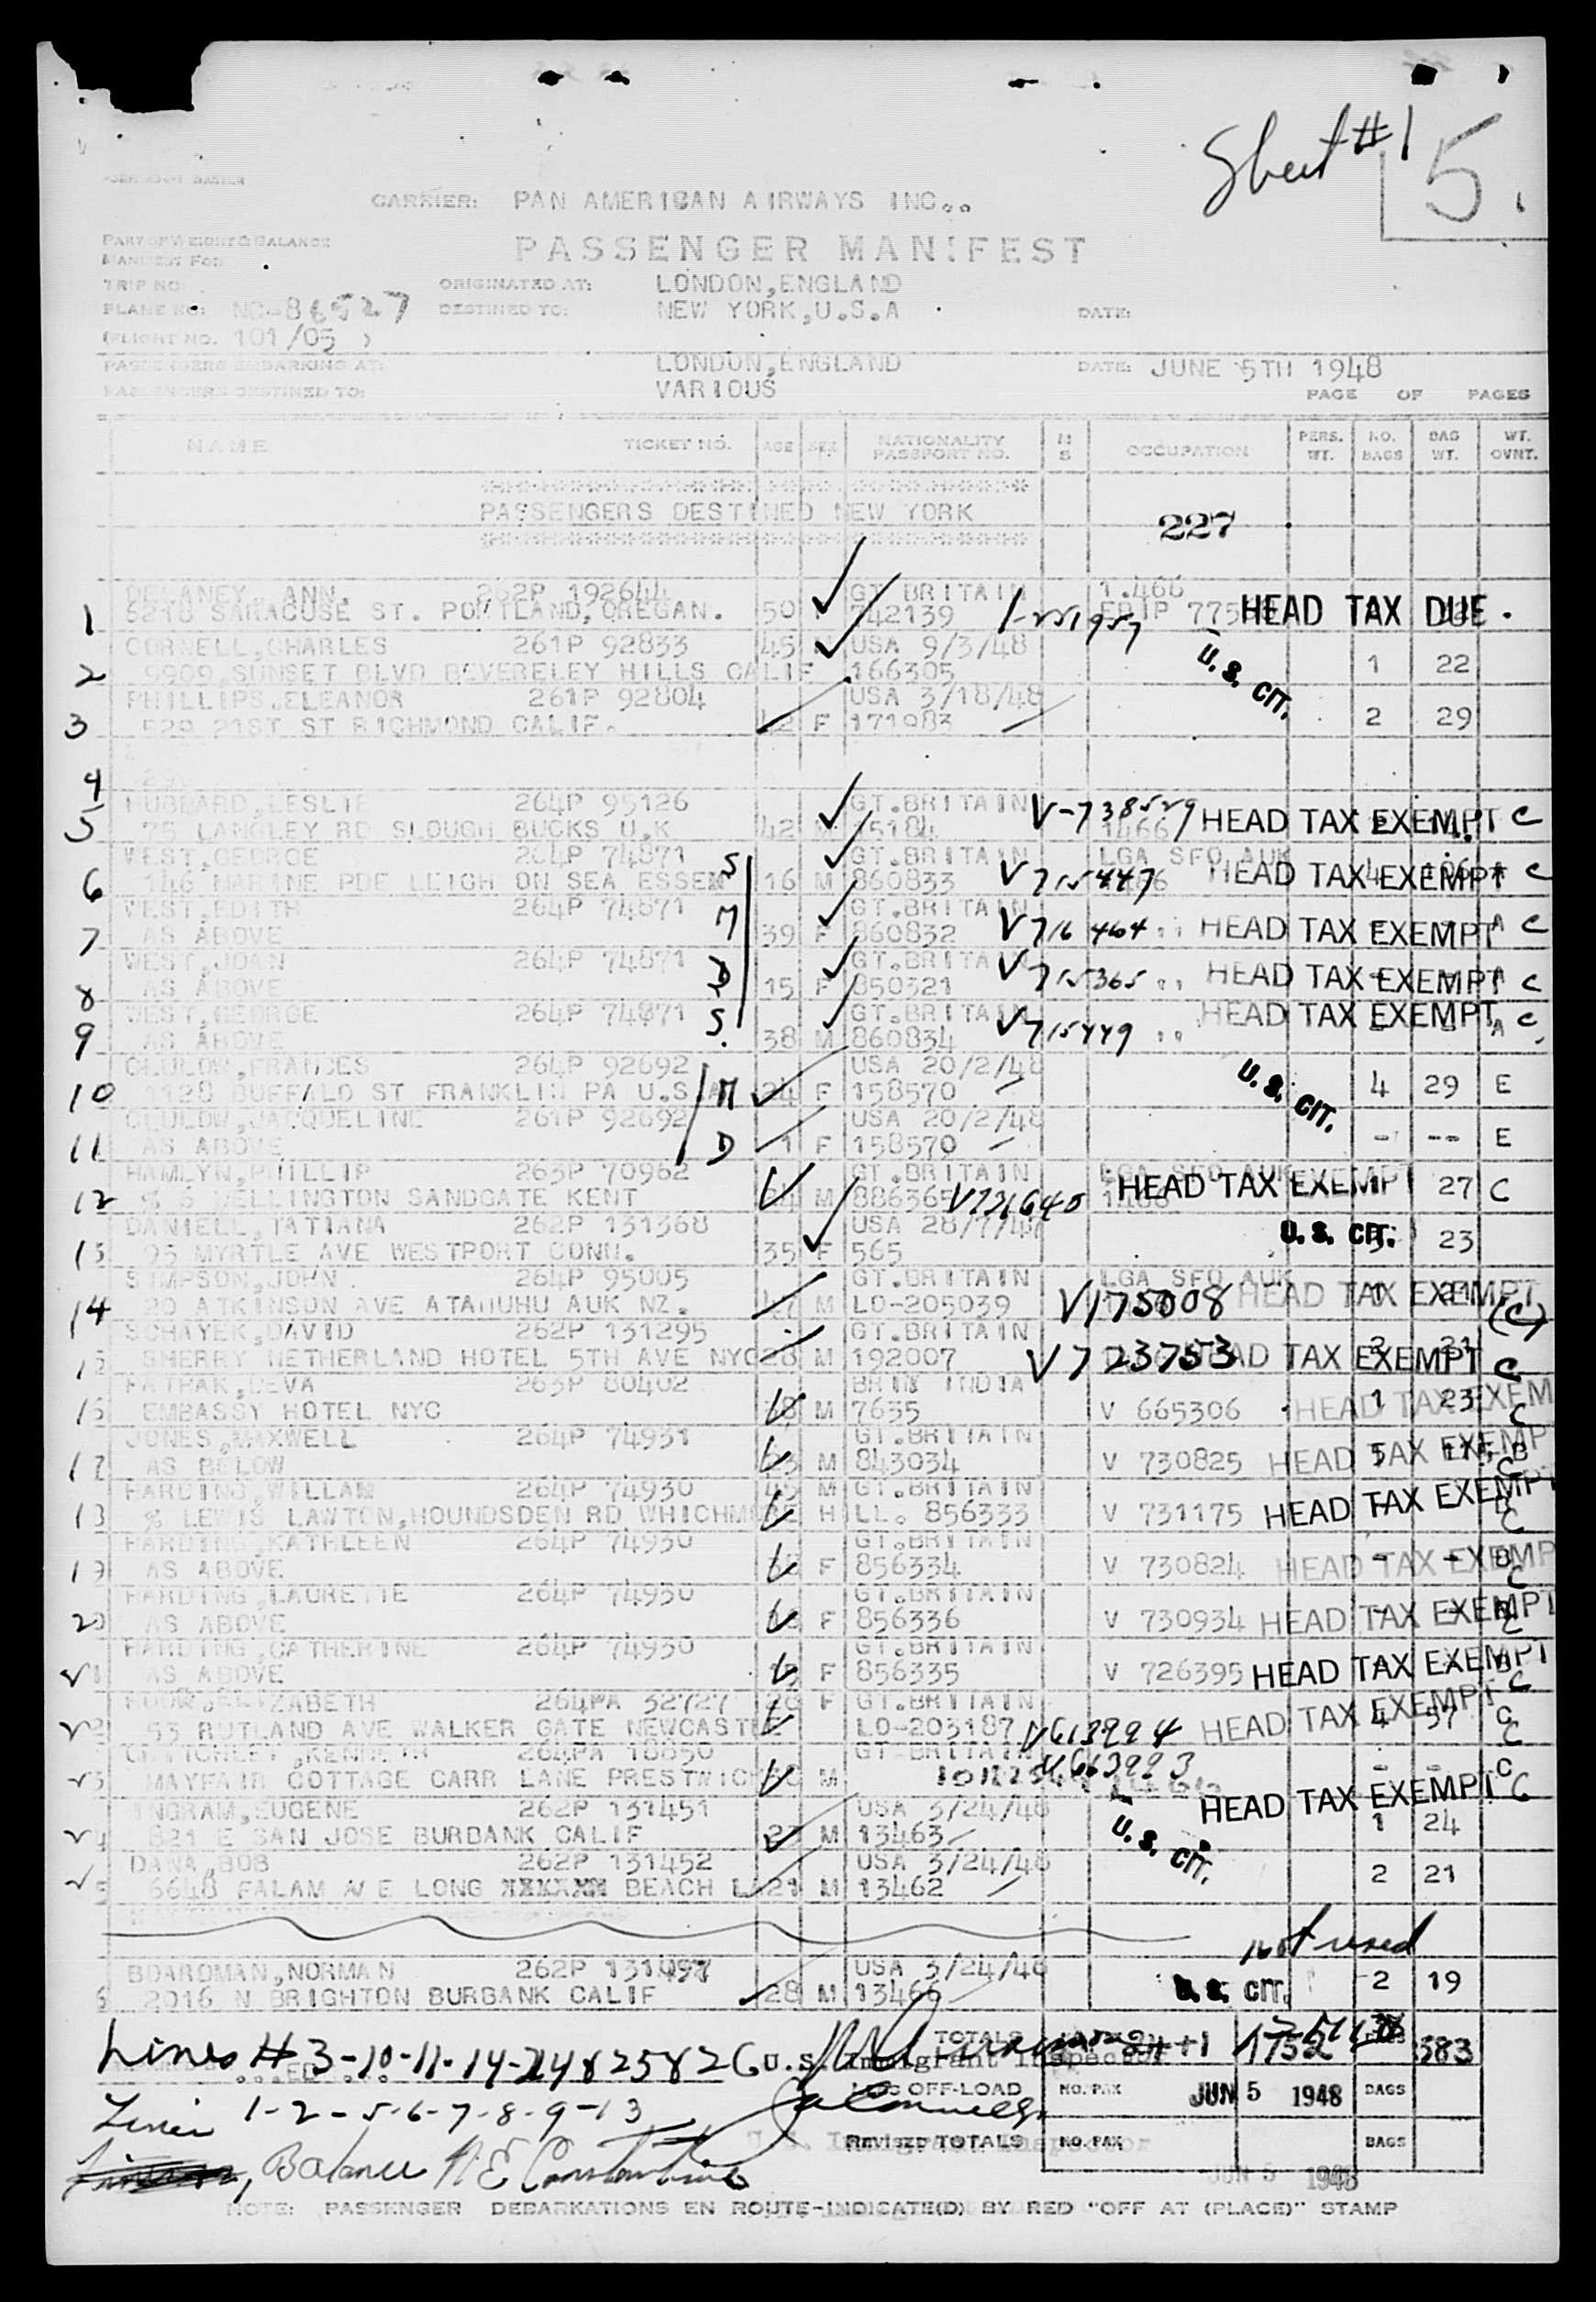 Sheet #1
5.
CARRIER: PAN AMERICAN AIRWAYS INC..
PART OF WEIGHT & BALANCE
MANIFEST FOR
PASSENGER MANIFEST
TRIP NO. ORIGINATED AT: LONDON,ENGLAND
PLANE NO: NC-86527 DESTINED TO: NEW YORK,U.S.A DATE:
(FLIGHT NO. 101/05 )
PASSENGERS EMBARKING AT: LONDON,ENGLAND DATE: JUNE 5TH 1948
PASSENGERS DESTINED TO: VARIOUS PAGE OF PAGES
NAME TICKET NO. AGE SEX NATIONALITY PASSPORT NO. M S OCCUPATION PERS. WT. NO. BAGS BAG WT. WT. OVNT.
PASSENGERS DESTINED NEW YORK
227
DELANEY, ANN. 262P 192644 GT BRITAIN 1.466
1 6216 SARACUSE ST. PORTLAND,OREGAN. 50 742139 HEAD TAX DUE.
CORNELL,CHARLES 261P 92833 45 M USA 9/3/48
2 9909 SUNSET BLVD BEVERELEY HILLS CALIF 166305 U.S. CIT. 1 22
PHILLIPS,ELEANOR 261P 92804 USA 3/18/48
3 529 21ST ST RICHMOND CALIF. F 171983 2 29
4
HUBBARD,LESLIE 264P 95126 GT.BRITAIN V-738529
5 75 LANGLEY RD SLOUGH BUCKS U.K 42 M 15184 1466 HEAD TAX EXEMPT C
WEST,GEORGE 264P 74871 S GT.BRITAIN LGA SFO AUK
6 146 MARINE PDE LEIGH ON SEA ESSEX 16 M 860833 V715447 HEAD TAX EXEMPT C
WEST,EDITH 264P 74871 M GT.BRITAIN
7 AS ABOVE 39 F 860832 V716464 HEAD TAX EXEMPT A C
WEST,JOAN 264P 74871 D GT.BRITAIN
8 AS ABOVE 15 F 850321 V715365 HEAD TAX EXEMPT A C
WEST,GEORGE 264P 74871 S. GT.BRITAIN HEAD TAX EXEMPT C
9 AS ABOVE 38 M 860834 V715449 A
CLULOW,FRANCES 264P 92692 USA 20/2/48
10 1128 BUFFALO ST FRANKLIN PA U.S.A M 24 F 158570 U.S. CIT. 4 29 E
CLULOW,JACQUELINE 261P 92692 USA 20/2/48
11 AS ABOVE D 1 F 158570 - -- E
HAMLYN,PHILLIP 263P 70962 GT.BRITAIN LGA SFO AUK
12 WELLINGTON SANDGATE KENT M 886365 V731640 HEAD TAX EXEMPT 27 C
DANIELL,TATIANA 262P 131368 USA 28/7/48
13 95 MYRTLE AVE WESTPORT CONN. 35 F 565 U.S. CIT. 23
SIMPSON,JOHN 264P 95005 GT.BRITAIN LGA SFO AUK
14 20 ATKINSON AVE ATAHUHU AUK NZ. 47 M LO-205039 V175008 HEAD TAX EXEMPT (C)
SCHAYEK,DAVID 262P 131295 GT.BRITAIN
15 SHERRY NETHERLAND HOTEL 5TH AVE NYC 28 M 192007 V723753 HEAD TAX EXEMPT C
PATHAK,DEVA 263P 80402 BRIT INDIA
16 EMBASSY HOTEL NYC M 7635 V 665306 HEAD TAX EXEM 1 23 C
JONES,MAXWELL 264P 74931 GT.BRITAIN
17 AS BELOW M 843034 V 730825 HEAD TAX EXEMP B C
HARDING,WILLAM 264P 74930 45 M GT.BRITAIN
18 % LEWIS LAWTON,HOUNDSDEN RD WHICHMORE HILL. 856333 V 731175 HEAD TAX EXEMPT C
HARDING,KATHLEEN 264P 74930 GT.BRITAIN
19 AS ABOVE F 856334 V 730824 HEAD TAX EXEMP B C
HARDING,LAURETTE 264P 74930 GT.BRITAIN
20 AS ABOVE F 856336 V 730934 HEAD TAX EXEMPT
HARDING,CATHERINE 264P 74930 GT.BRITAIN
21 AS ABOVE F 856335 V 726395 HEAD TAX EXEMPT C
ELIZABETH 264PA 32727 26 F GT.BRITAIN
22 53 RUTLAND AVE WALKER GATE NEWCASTLE LO-203187 V613994 HEAD TAX EXEMPT 4 57 C
CRITCHLEY,KENNETH 264PA 18850 GT.BRITAIN V663993
23 MAYFAIR COTTAGE CARR LANE PRESTWICH M HEAD TAX EXEMPT C
INGRAM,EUGENE 262P 131451 USA 3/24/48
24 821 E SAN JOSE BURBANK CALIF 23 M 13463 U.S. CIT. 1 24
DANA,BOB 262P 131452 USA 3/24/48
25 6648 FALAM AVE LONG BEACH 21 M 13462 2 21
not used
BOARDMAN,NORMAN 262P USA 3/24/48
6 2016 N BRIGHTON BURBANK CALIF 28 M 13466 U.S. CIT. 2 19
TOTALS 24+1 1752 583
Lines # 3-10-11-14-24 & 25 & 26 U.S. Immigrant Inspector
LESS OFF-LOAD NO. PAX JUN 5 1948 BAGS
Lines 1-2-5-6-7-8-9-13
U.S. Immigrant Inspector
REVISED TOTALS NO. PAX BAGS
Balance N E Constantine
JUN 5 1948
NOTE: PASSENGER DEBARKATIONS EN ROUTE-INDICATE(D) BY RED "OFF AT (PLACE)" STAMP